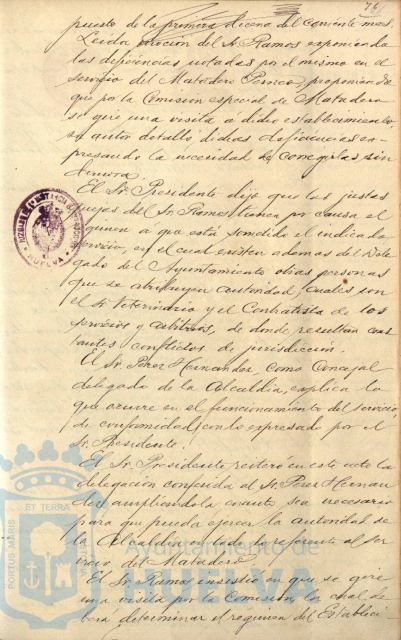 76
puesto de la primera decena del corriente mes.
Leida moción del Sr. Ramos exponiendo
las deficiencias notadas por el mismo en el
servicio del Matadero Público, proponiendo
que por la Comisión especial de Matadero
se gire una visita a dicho establecimiento,
su autor detalló dichas deficiencias ex-
presando la necesidad de corregirlas sin
demora.
El Sr. Presidente dijo que las justas
quejas del Sr. Ramos tienen por causa el
régimen a que está sometido el indicado
servicio, en el cual existen además del Dele-
gado del Ayuntamiento otras personas
que se atribuyen autoridad, cuales son
el Sr. Veterinario y el Contratista de los
servicios y arbitrios, de donde resultan cons-
tantes conflictos de jurisdicción.
El Sr. Perez Hernandez, como Concejal
delegado de la Alcaldia, explica lo
que ocurre en el funcionamiento del servicio,
de conformidad con lo expresado por el
Sr. Presidente.
El Sr. Presidente reiteró en este acto la
delegación conferida al Sr. Perez Hernan-
dez ampliandola cuanto sea necesario
para que pueda ejercer la autoridad de
la Alcaldia en todo lo referente al ser-
vicio del Matadero.
El Sr. Ramos insistió en que se gire
una visita por la Comisión, la cual de-
berá determinar el régimen del Estableci-
HUELVA
PORTUS MARIS
ET TERRÆ
Ayuntamiento de
HUELVA